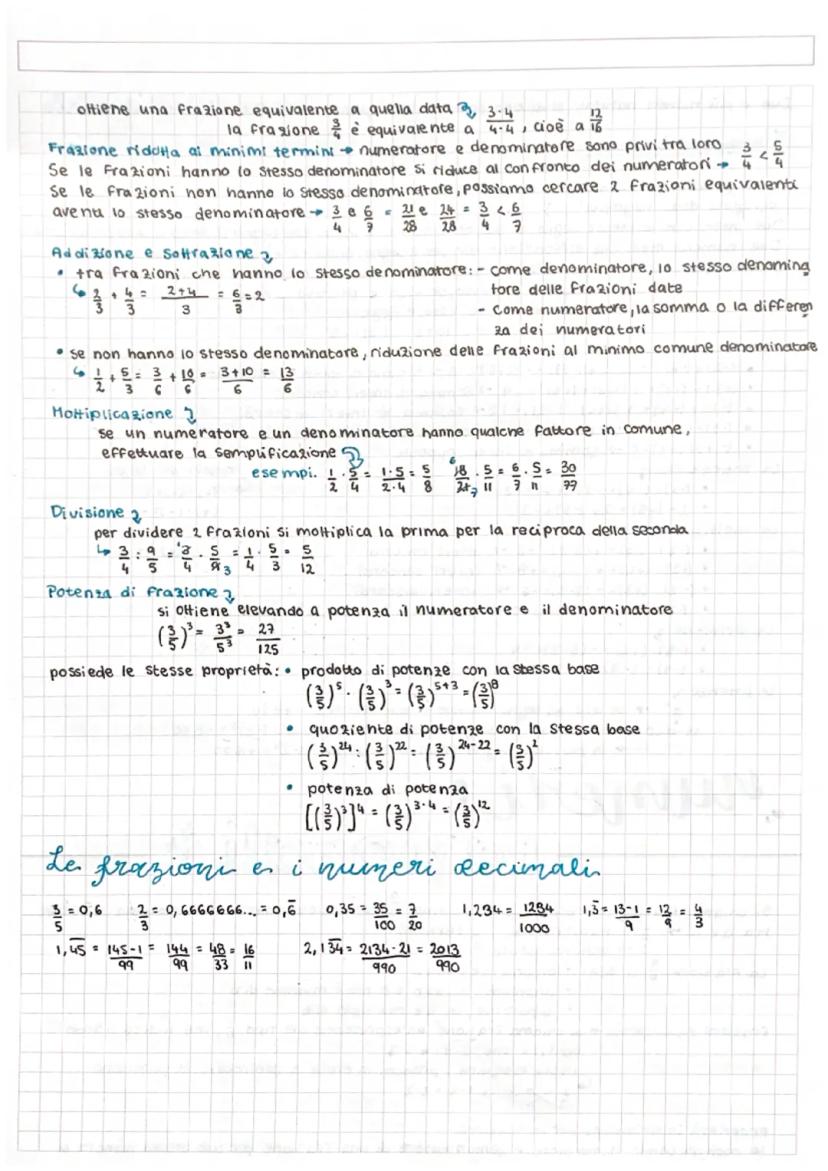 ottiene una frazione equivalente a quella data 3·4/4·4
la frazione 3/4 è equivalente a 3·4/4·4, cioè a 12/16
Frazione ridotta ai minimi termini → numeratore e denominatore sono privi tra loro
Se le frazioni hanno lo stesso denominatore si riduce al confronto dei numeratori → 3/4 < 5/4
Se le frazioni non hanno lo stesso denominatore, possiamo cercare 2 frazioni equivalenti
aventi lo stesso denominatore → 3/4 e 6/7 = 21/28 e 24/28 = 3/4 < 6/7
Addizione e Sottrazione
• tra frazioni che hanno lo stesso denominatore: - come denominatore, lo stesso denomina
tore delle frazioni date
2/3 + 4/3 = 2+4/3 = 6/3 = 2
- come numeratore, la somma o la differen
za dei numeratori
• se non hanno lo stesso denominatore, riduzione delle frazioni al minimo comune denominatore
1/2 + 5/3 = 3/6 + 10/6 = 3+10/6 = 13/6
Moltiplicazione
se un numeratore e un denominatore hanno qualche fattore in comune,
effettuare la semplificazione
esempi. 1/2 · 5/4 = 1·5/2·4 = 5/8 18/21 · 5/11 = 6/7 · 5/11 = 30/77
Divisione
per dividere 2 frazioni si moltiplica la prima per la reciproca della seconda
3/4 : 9/5 = 3/4 · 5/9 = 1/4 · 5/3 = 5/12
Potenza di frazione
si ottiene elevando a potenza il numeratore e il denominatore
(3/5)³ = 3³/5³ = 27/125
possiede le stesse proprietà: • prodotto di potenze con la stessa base
(3/5)⁵ · (3/5)³ = (3/5)⁵⁺³ = (3/5)⁸
• quoziente di potenze con la stessa base
(3/5)²⁴ : (3/5)²² = (3/5)²⁴⁻²² = (3/5)²
• potenza di potenza
[(3/5)³]⁴ = (3/5)³·⁴ = (3/5)¹²
Le frazioni e i numeri decimali
3/5 = 0,6 2/3 = 0,6666666... = 0,6̅ 0,35 = 35/100 = 7/20 1,234 = 1234/1000 1,3̅ = 13-1/9 = 12/9 = 4/3
1,4̅5̅ = 145-1/99 = 144/99 = 48/33 = 16/11 2,13̅4̅ = 2134-21/990 = 2013/990